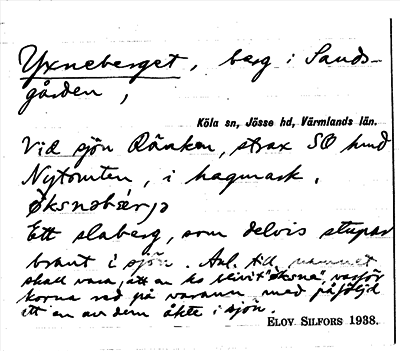 Yxneberget, berg i Sands-
gården,
Köla sn, Jösse hd, Värmlands län.
Vid sjön Ränken, strax SO hund
Nytomten, i hagmark.
Ett slaberg, som delvis stupar
brant i sjön. Anl. till namnet
skall vara, att en ko blivit "öksna", varför
korna red på varann med påföljd
att en av dem åkte i sjön.
ELOV SILFORS 1938.